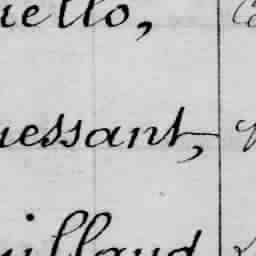 uello,
uessant,
uillaud